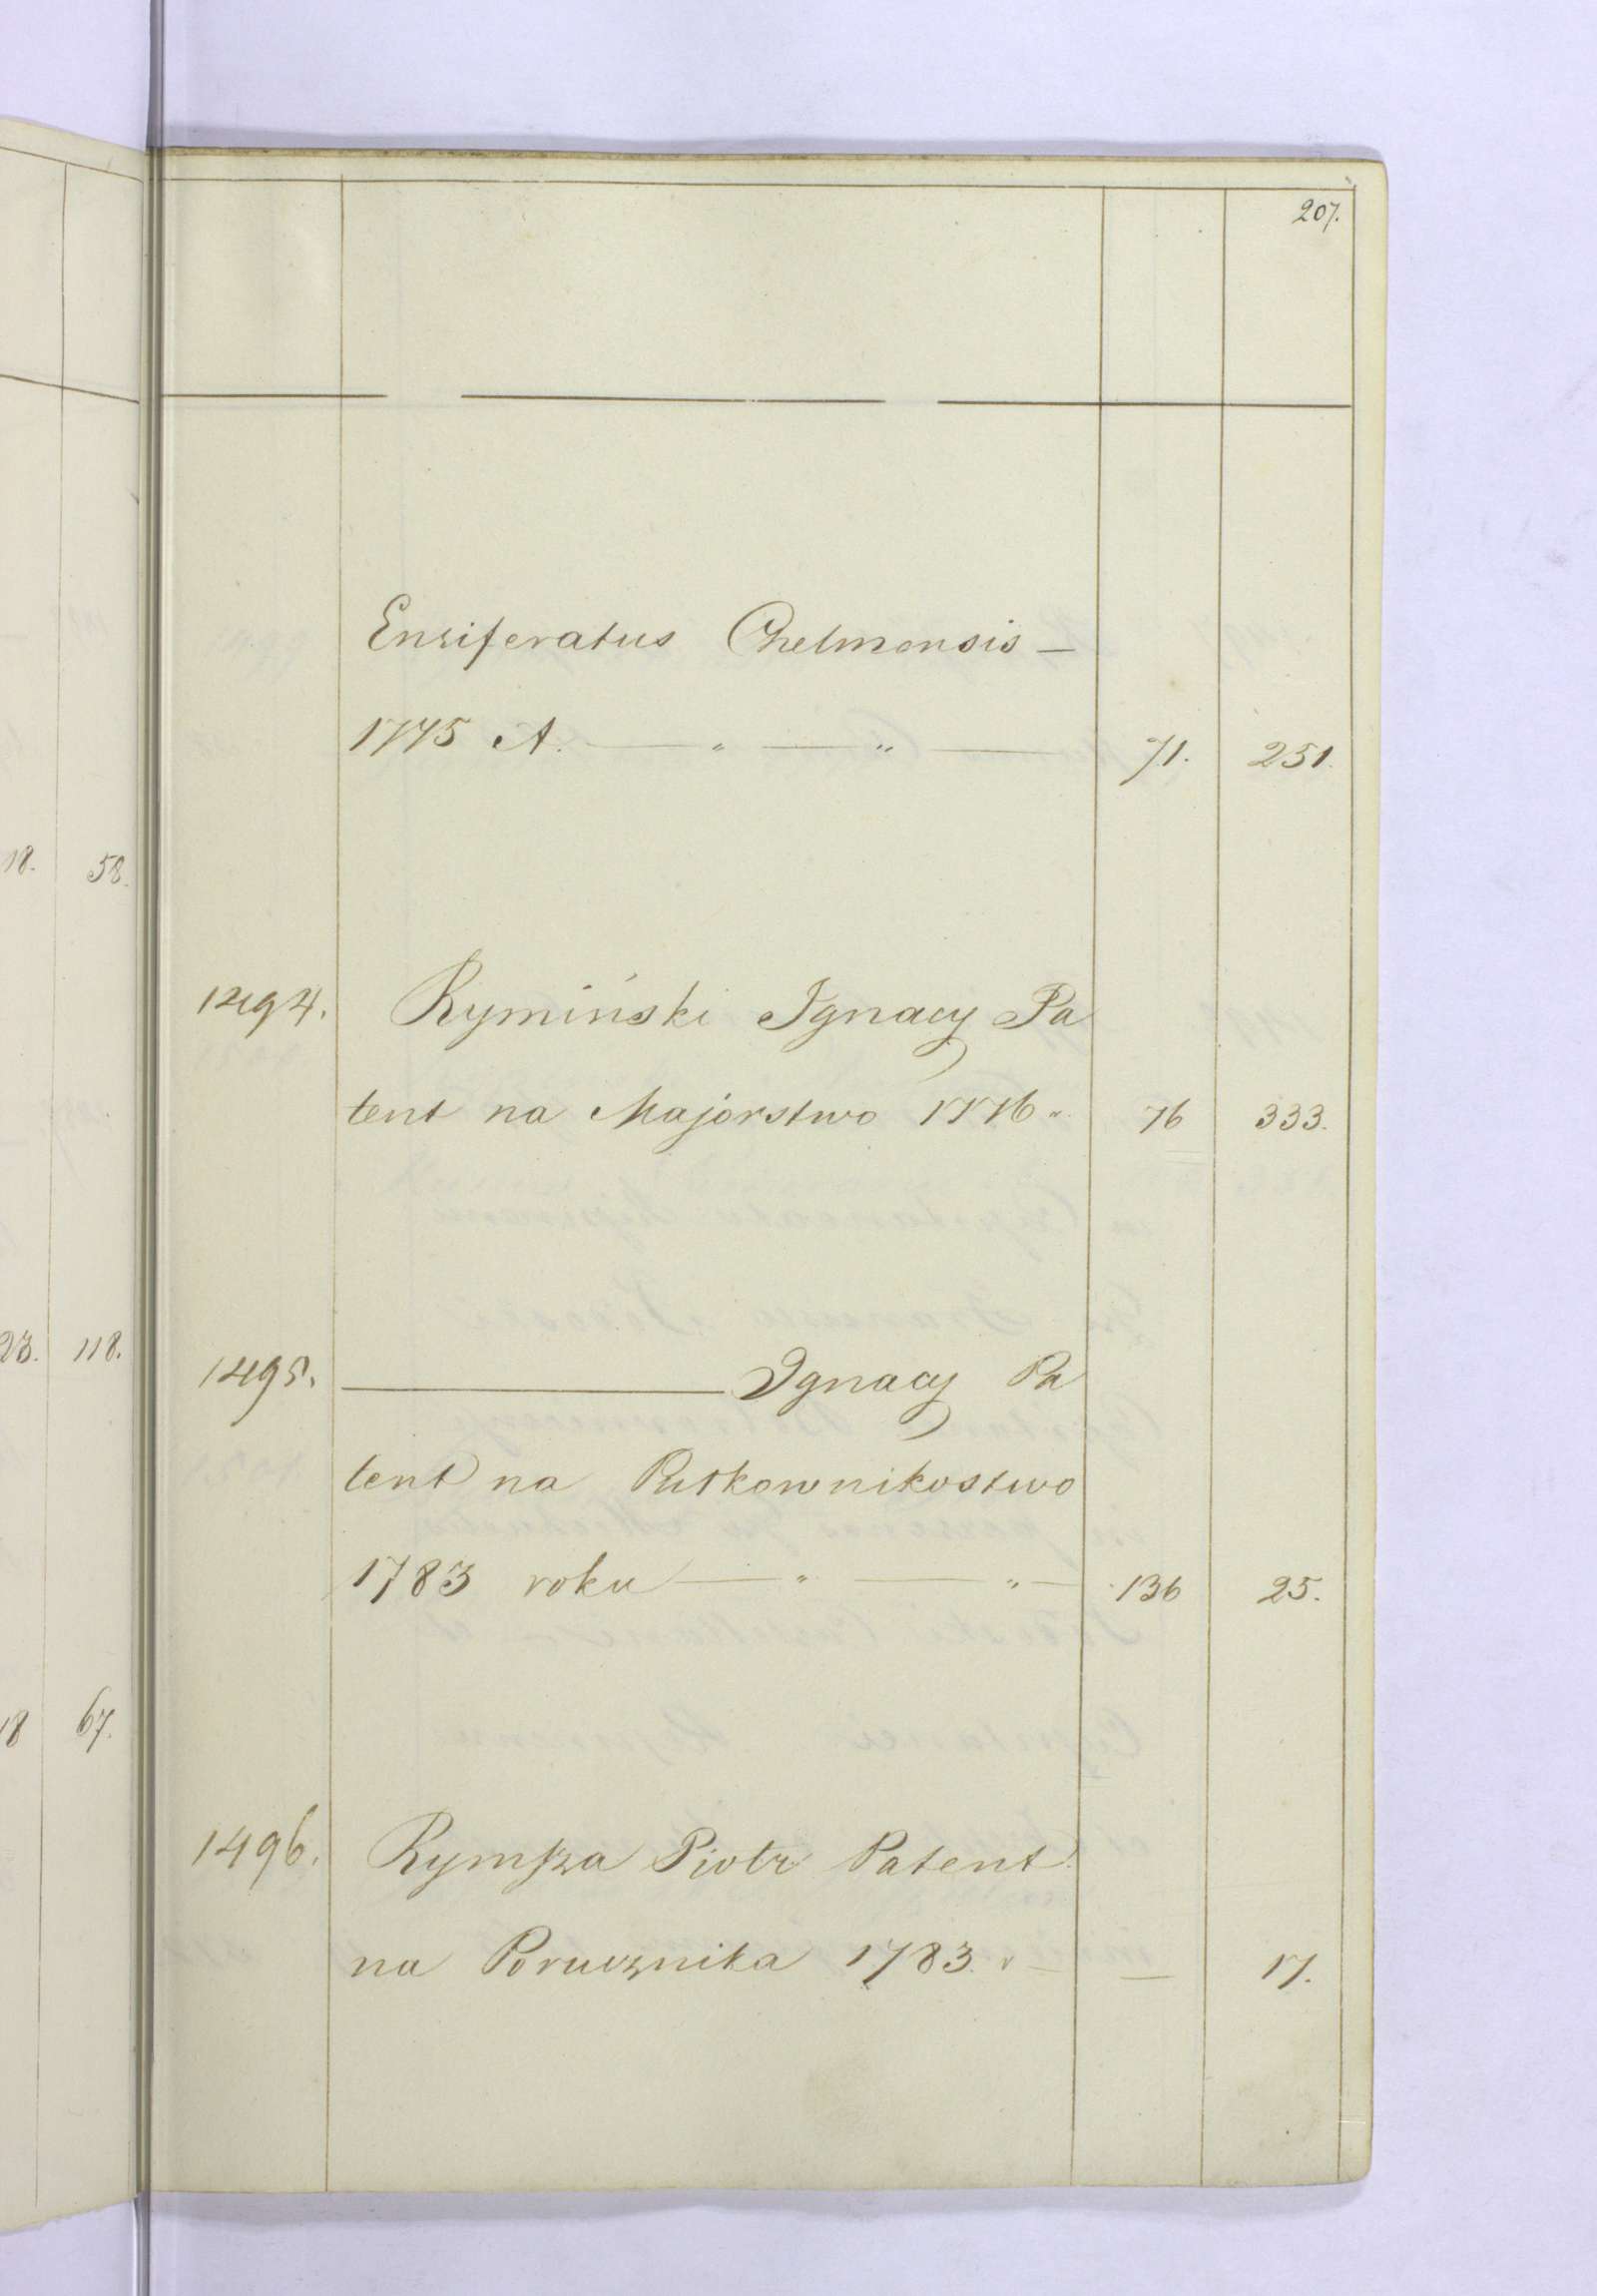 207.
Ensiferatus Chelmensis —
1775 A. — " — " — 71. 251.
18. 58.
1494. Rymiński Ignacy Pa
tent na Majorstwo 1776 " 76 333.
23. 118.
1495. ——— Ignacy Pa
tent na Pułkownikostwo
1783 roku — " — " — 136 25.
18 67.
1496. Rymsza Piotr Patent
na Porucznika 1783. r — — 17.